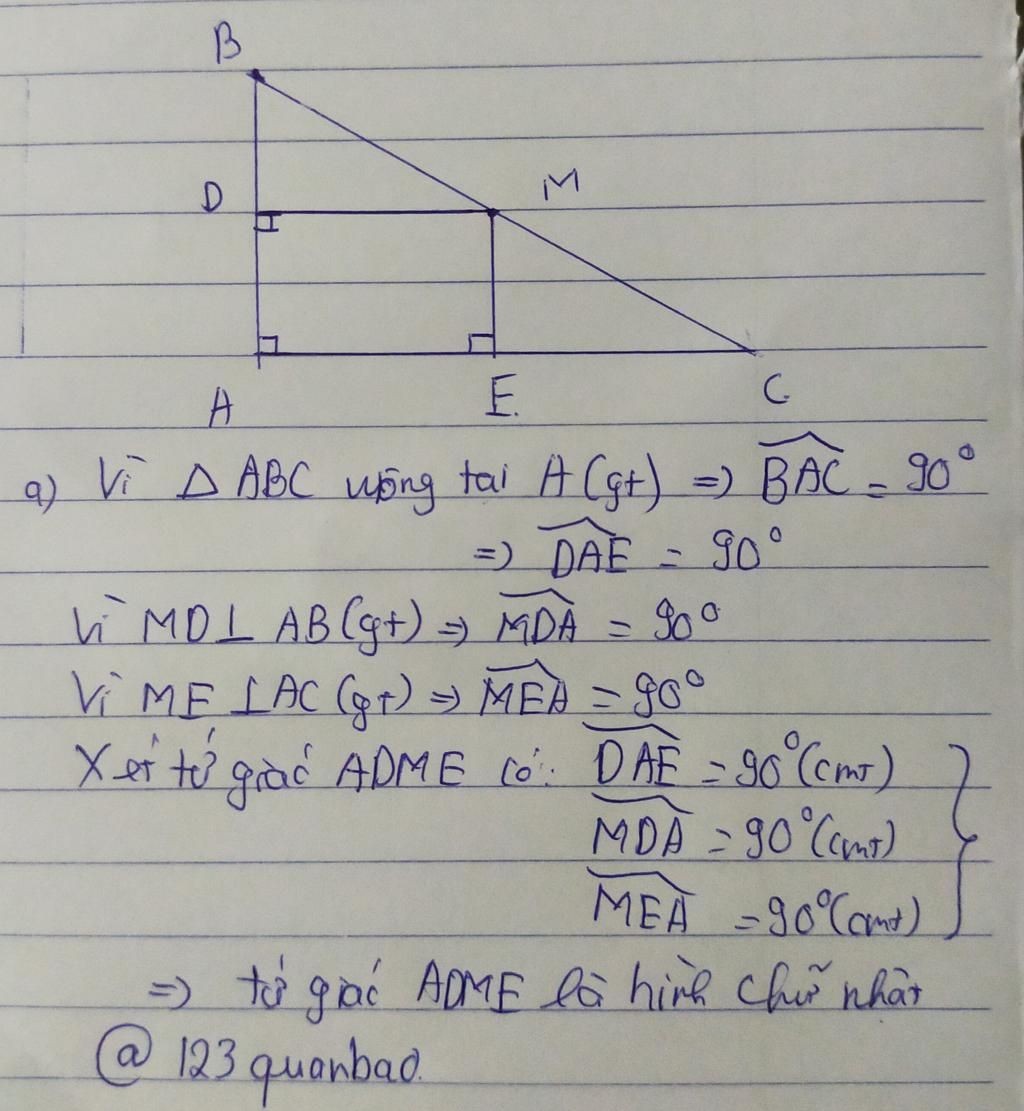 B
D
M
A
E.
C
a) Vì △ ABC vuông tại A (gt) => BAC = 90°
=> DAE = 90°
Vì MD ⊥ AB (gt) => MDA = 90°
Vì ME ⊥ AC (gt) => MEA = 90°
Xét tứ giác ADME có: DAE = 90° (cmt)
MDA = 90° (cmt)
MEA = 90° (cmt)
=> tứ giác ADME là hình chữ nhật
@ 123 quanbao.